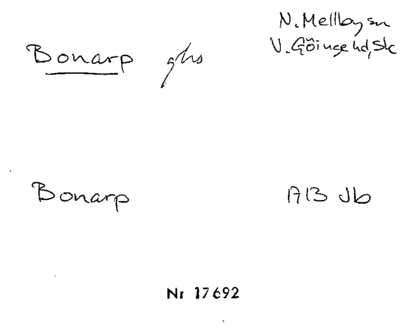 Bonarp gho N. Mellby sn
V. Göinge hd, Sk
Bonarp 1713 Jb
Nr 17692